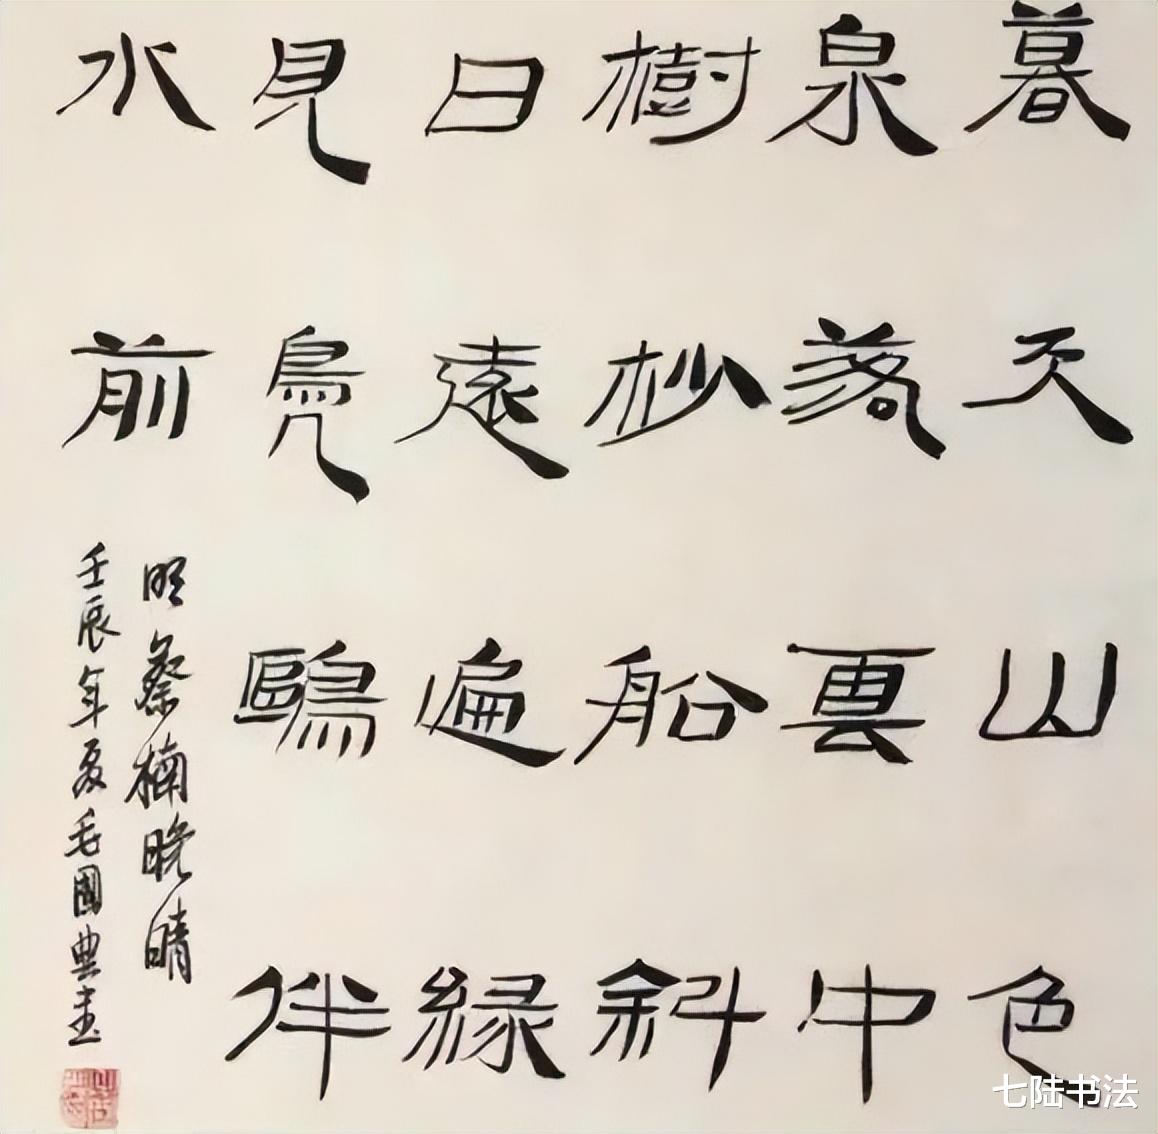 暮天山色
泉落雲中
樹杪船斜
日遠遍緑
見鳧鷗伴
水前
明蔡楠晚晴
壬辰年夏毛國典書
七陆书法